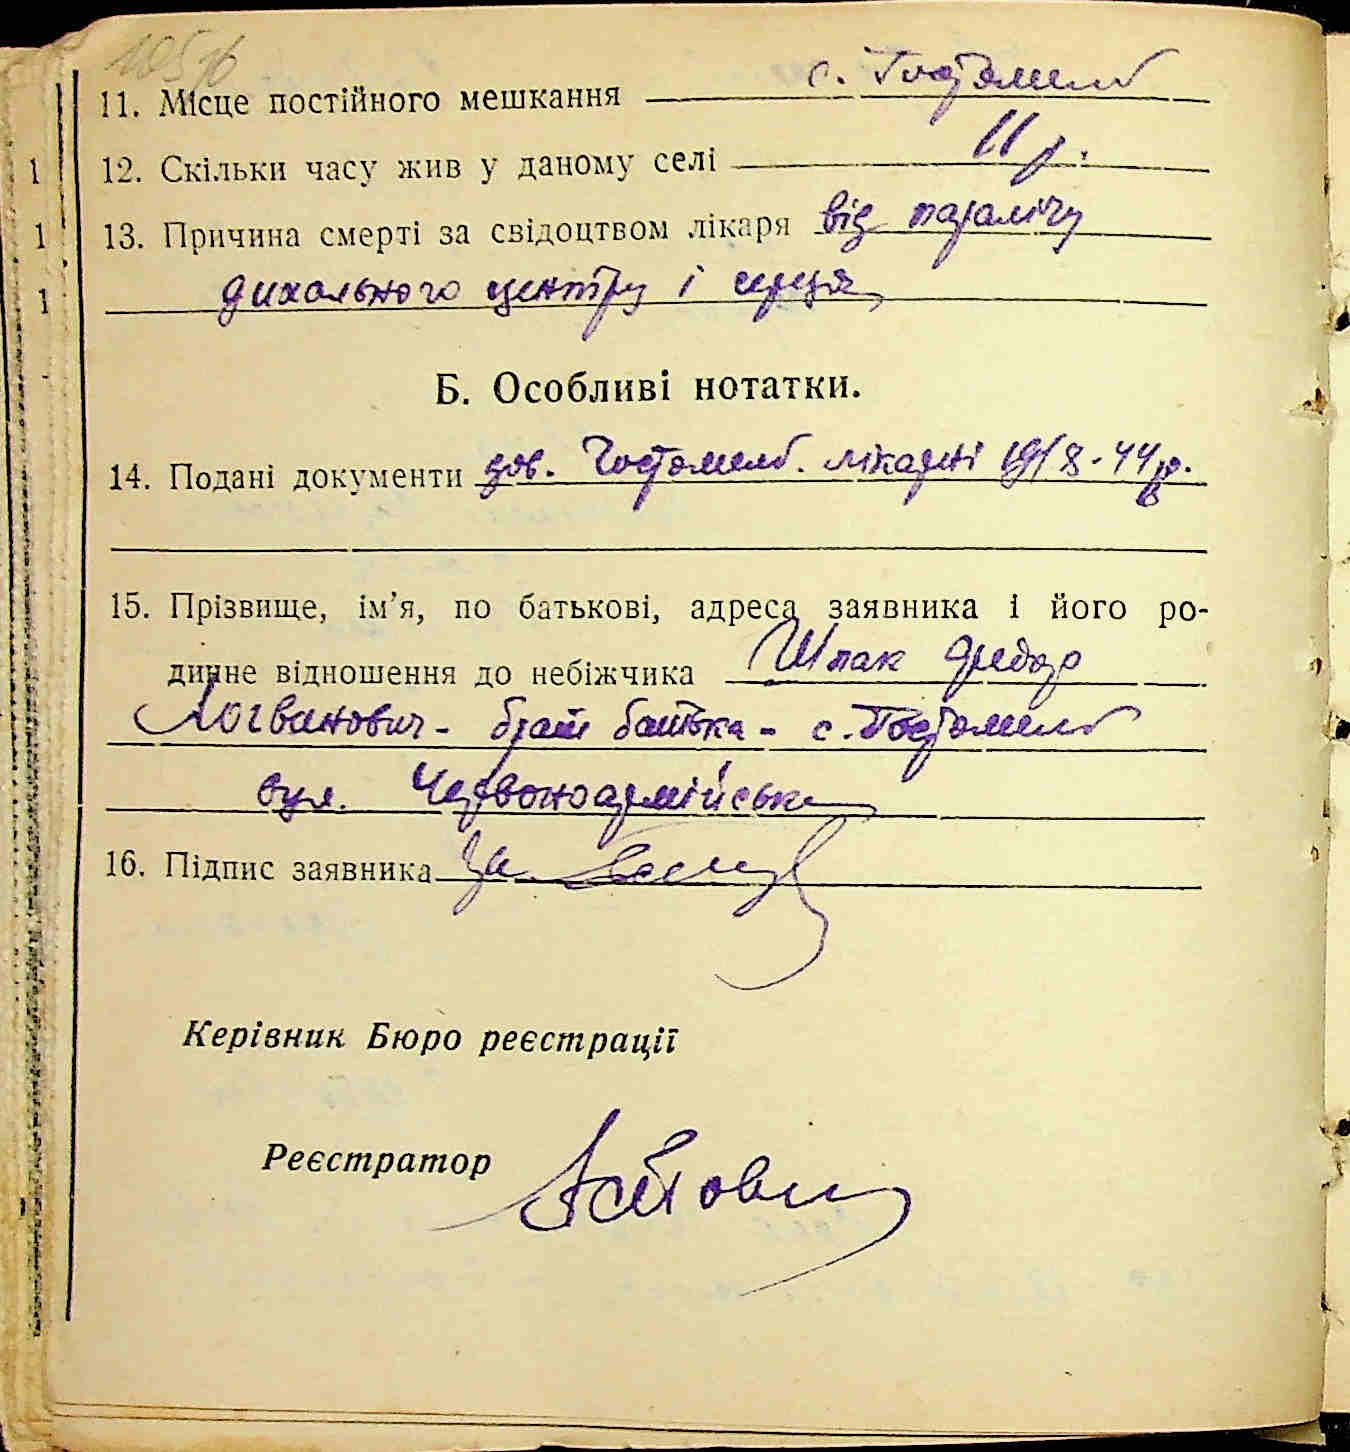 105 зв
11. Місце постійного мешкання с. Гостомель
12. Скільки часу жив у даному селі 11 р.
13. Причина смерті за свідоцтвом лікаря від паралічу
дихального центру і серця
Б. Особливі нотатки.
14. Подані документи дов. Гостомел. лікарні 19/8-44 р.
15. Прізвище, ім’я, по батькові, адреса заявника і його ро-
динне відношення до небіжчика Шпак Федор
Логванович - брат батька - с. Гостомель
вул. Червоноармійська
16. Підпис заявника за
Керівник Бюро реєстрації
Реєстратор
1
1
1